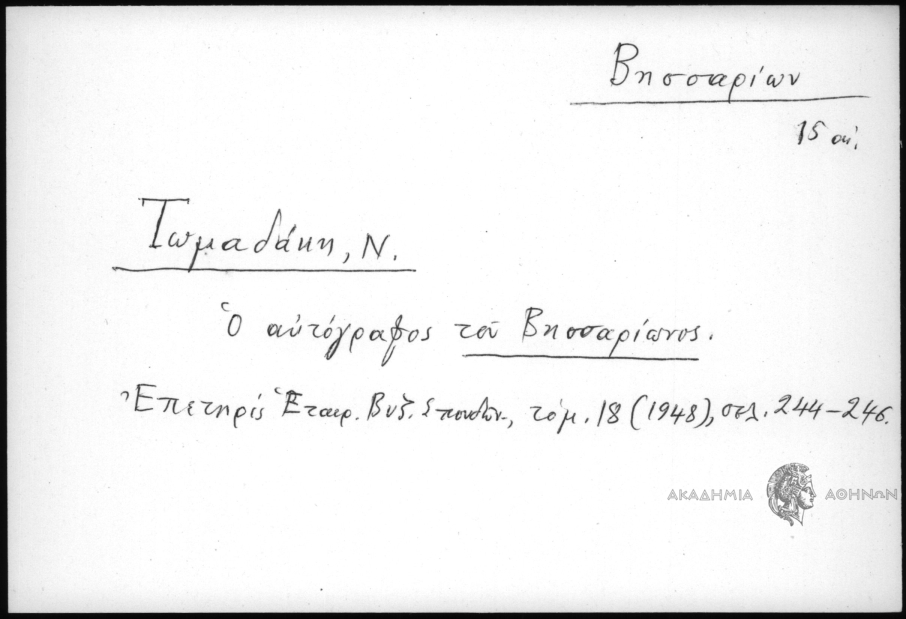 Βησσαρίων
15 αἰ.
Τωμαδάκη, Ν.
Ὁ αὐτόγραφος τοῦ Βησσαρίωνος.
Ἐπετηρίς Ἑταιρ. Βυζ. Σπουδῶν, τόμ. 18 (1948), σελ. 244-246.
ΑΚΑΔΗΜΙΑ ΑΘΗΝΩΝ